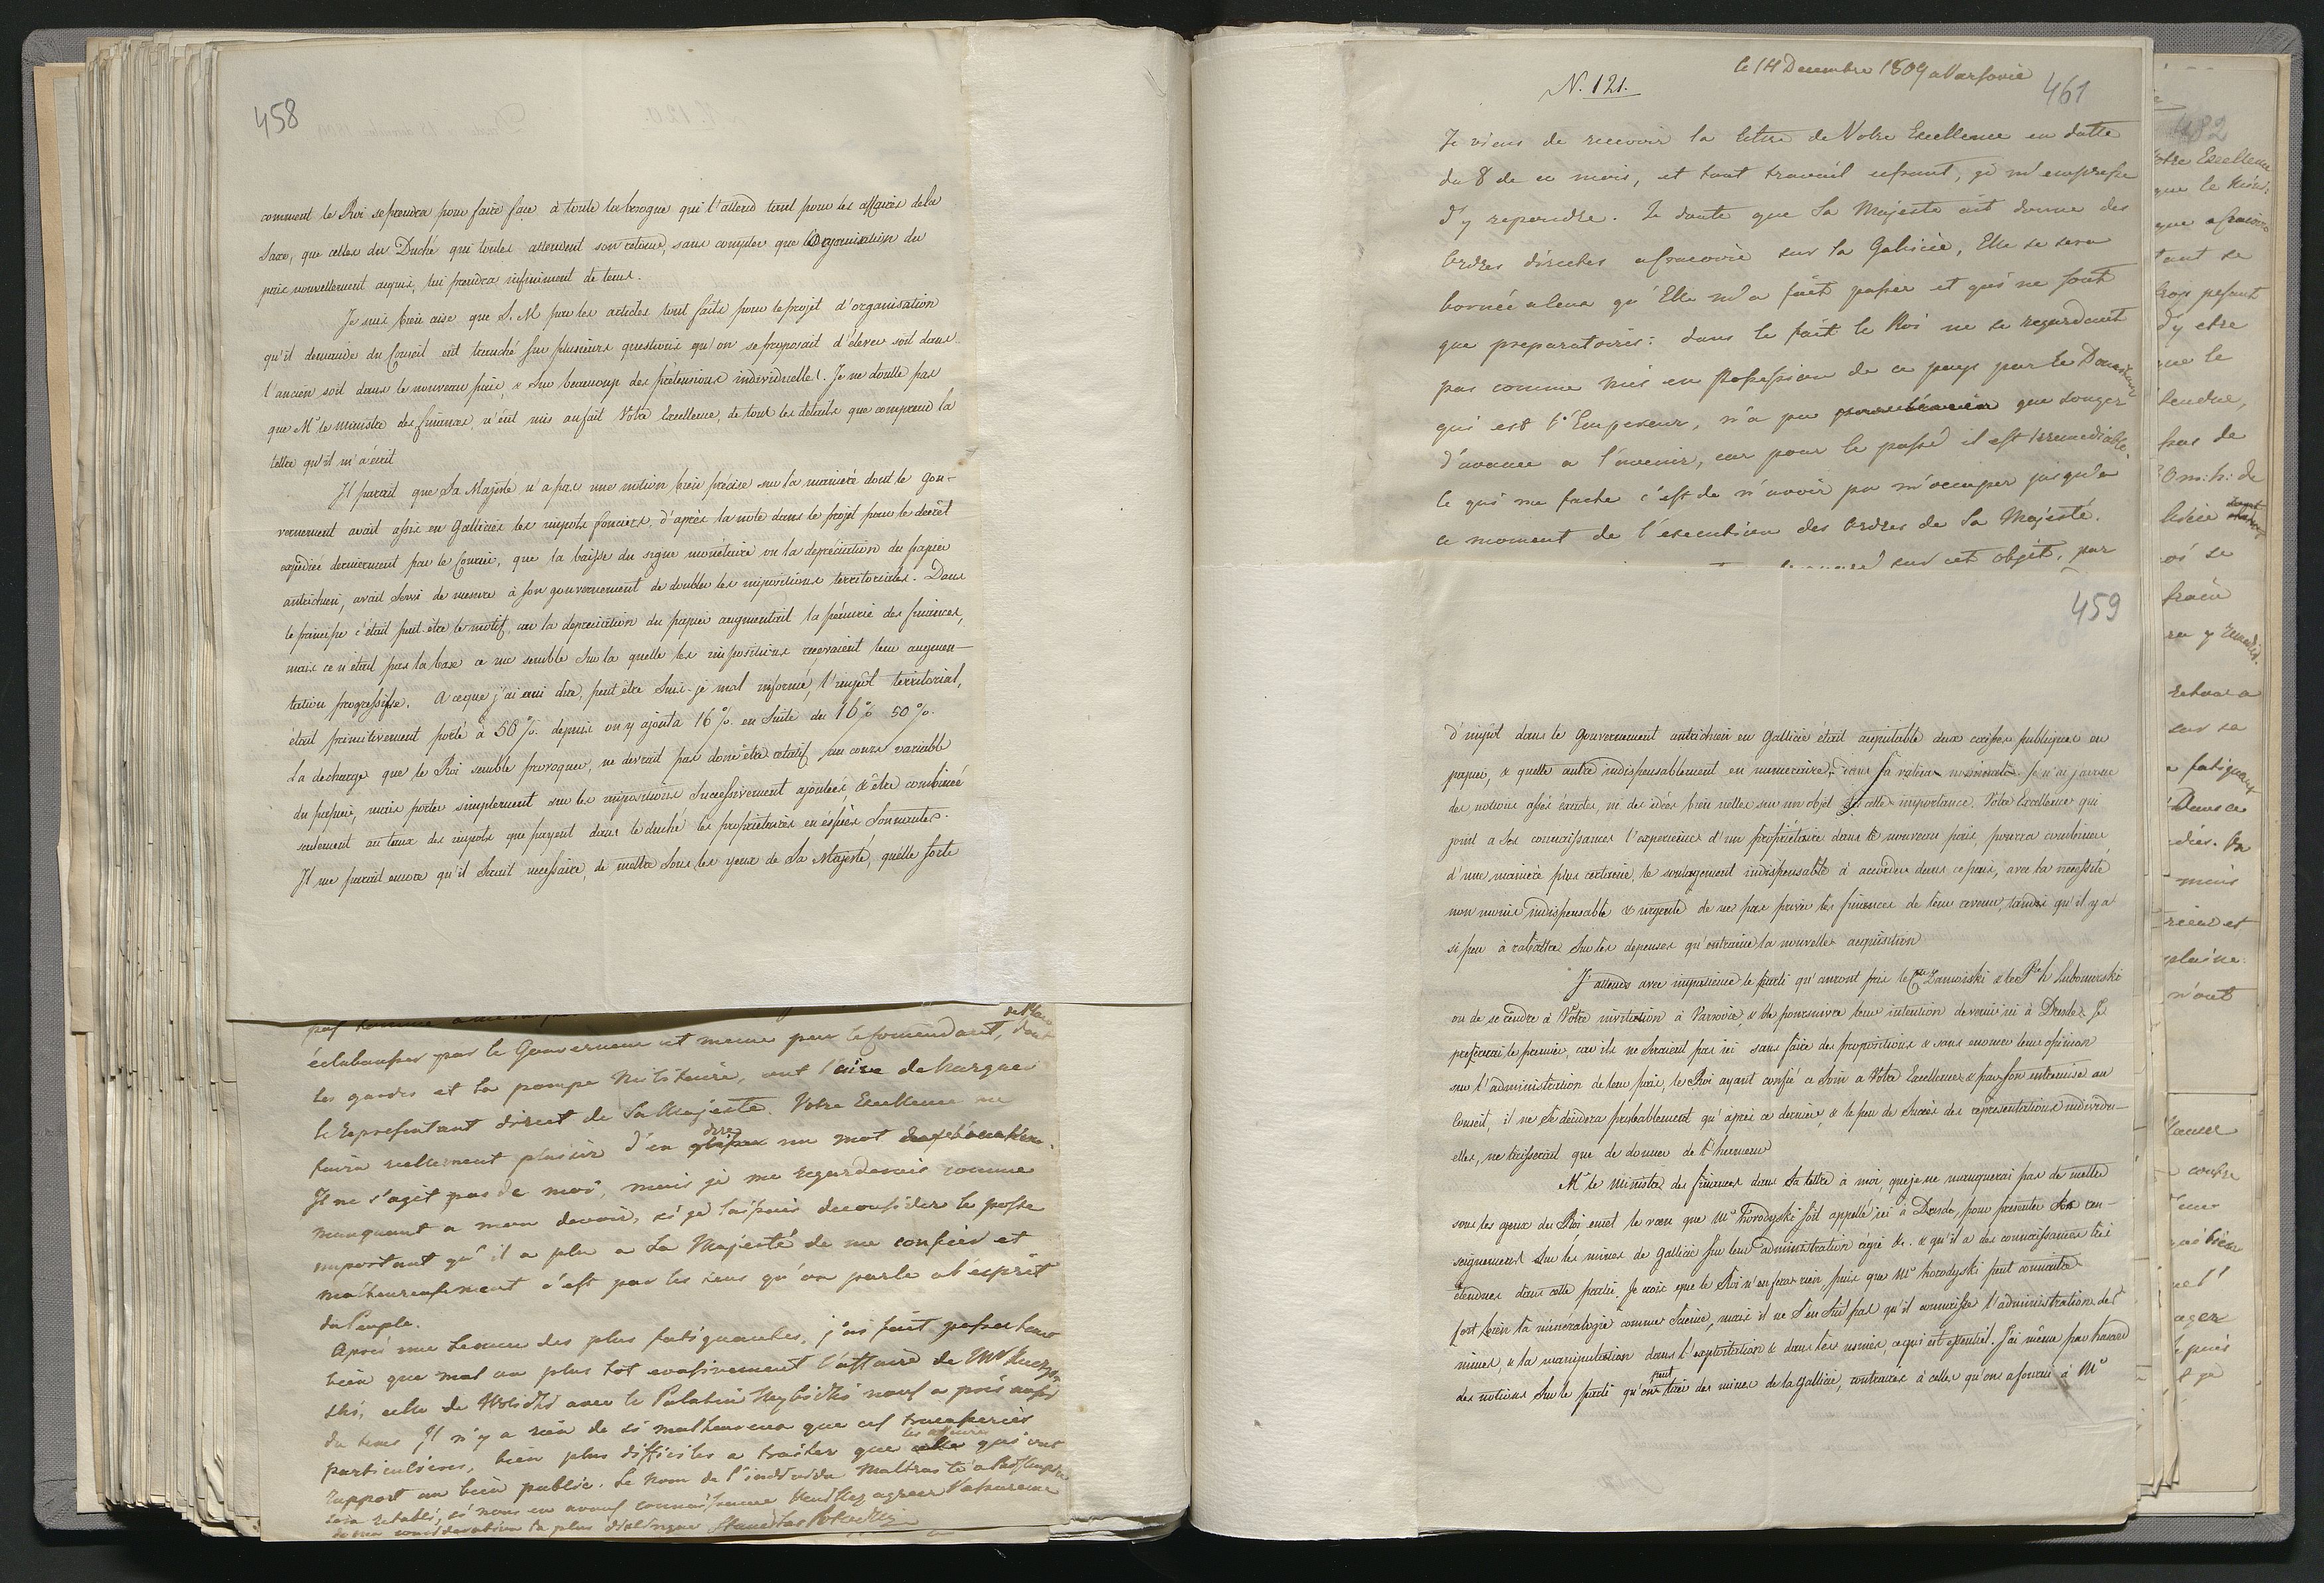 458
comment le Roi se prendra pour faire face à toute la besogne qui l'attend tant pour les affaires de la
Saxe, que celles du Duché qui toutes attendent son retour, sans compter que l'organisation du
pais nouvellement acquis, lui prendra infiniment de tems.
Je suis bien aise que S. M par les articles tout faits pour le projet d'organisation
qu'il demande du Conseil eût tranché sur plusieurs questions qu'on se proposait d'élever soit dans
l'ancien soit dans le nouveau pais, & sur beaucoup des pretensions individuelles. Je ne doutte pas
que Mr le ministre des finances, n'eût mis au fait Votre Excellence, de tout les détails que comprend la
lettre qu'il m'a écrit
Il parait que Sa Majesté n'a pas une notion bien précise sur la manière dont le gou-
vernement avait assis en Gallicie les impots fonciers, d'après la note dans le projet pour le decrêt
expedieé dernierment par le Courier, que la baisse du signe monétaire ou la depréciation du papier
autrichien, avait servi de mesure à son gouvernement de doubler les impositions territoriales. Dans
le principe c'était peut-être le motif, car la depreciation du papier augmentait la pénurie des finances,
mais ce n'était pas la base ce me semble sur la quelle les impositions recevaient leur augmen-
tation progressive. A ceque j'ai oui dire, peut être suis-je mal informé, l'impôt territorial,
était primitivement porté à 50%. depuis on y ajouta 16%. en suite du 16% 50%.
La decharge que le Roi semble provoquer, ne devrait pas donc être relatif au cours variable
du papier, mais porter simplement sur les impositions successivement ajoutées, & être combineé
seulement au taux des impots que payent dans le duché les proprietaires en espèces sonnantes.
Il me parait encore qu'il serait necessaire, de mettre sous les yeux de Sa Majesté, quelle sorte
de Place
éclabousser par le Gouverneur et meme par le Comendant, dont
les gardes et la pompe Militaire, ont l'aire de narguer
le representant direct de Sa Majesté. Votre Excellence me
faira reellement plaisir d'en dire un mot
Il ne s'agit pas de moi, mais je me regarderais comme
manquant a mon devoir, si je laissais deconsiderer le poste
important qu'il a plu a Sa Majesté de me confier et
malheureusement c'est par les sens qu'on parle a l'esprit
du Peuple.
Après une seance des plus fatiguantes, j'ai fait passer tant
bien que mal ou plus tot evasivement l'affaire de Mr
ski, celle de Wolicki avec le Palatin Wybicki nous a pris aussi
du tems Il n'y a rien de si malheureux que ces tracasseries
particulieres, bien plus difficiles a traiter que les affaires qui ont
rapport au bien public. Le nom de l'individu Maltraité
sera retabli, si nous en avons connaissance Veuillez agreer l'assurance
de ma consideration la plus distingue Stanislas Potocki
le 14 Decembre 1809 a Varsovie
N. 121.
461
Je viens de recevoir la lettre de Votre Excellence en datte
du 8 de ce mois, et tout travail cessant, je m'empresse
d'y repondre. Je doute que Sa Majesté ait donne des
Ordres directes a Cracovie sur la Galicie, Elle se sera
bornée a ceux qu'Elle m'a fait passer et qui ne sont
que preparatoires: dans le fait le Roi ne se regardant
pas comme mis en Possession de ce pays par le Donateur
qui est l'Empereur, n'a pu que songer
d'avance a l'avenir, car pour le passé il est irremediable.
Ce qui me fache c'est de n'avoir pu m'occuper jusqu'a
ce moment de l'execution des Ordres de Sa Majesté.
sur cet objet, par
459
d'impôt dans le Gouvernement autrichien en Gallicie était acquitable aux caisses publiques en
papier, & quelle autre indispensablement en numeraire, dans sa valeur nominale. Je n'ai j'avoue
des notions assés éxactes, ni des idées bien nettes sur un objet de cette importance. Votre Excellence qui
joint a ses connaissances l'experience d'un propriétaire dans le nouveau pais, pourra combiner
d'une manière plus certaine, le soulagement indispensable à accorder dans ce pais, avec la necessité
non moins indispensable & urgente de ne pas priver les finances de leur revenu, tandis qu'il y a
si peu à rabattre sur les depenses qu'entraine la nouvelle acquisition
J'attends avec impatience le parti qu'auront pris le Cte Zamoiski & le Pce h Lubomirski
ou de se rendre à Votre invitation à Varsovie, & de poursuivre leur intention de venir ici à Dresde. Je
prefererai le premier, car ils ne seraient pas ici sans faire des propositions & sans enoncer leur opinion
sur l'administration de leur pais, le Roi ayant confié ce soin a Votre Excellence & par son entremise au
Conseil, il ne se decidera probablement qu'après ce dernier, & le peu de succès des representations individu-
elles, ne laisserait que de donner de l'humeur
Mr le Ministre des finances dans sa lettre à moi, que je ne manquerai pas de mettre
sous les yeux du Roi emet le vœu que Mr Horodyski soit appellé ici à Dresde, pour presenter ses ren-
seignemens sur les mines de Gallicie sur leur administration régie &c. & qu'il a des connaissances très
étendues dans cette partie. Je crois que le Roi n'en fera rien, puis que Mr Horodyski peut connaitre
fort bien la mineralogie comme science, mais il ne s'en suit pas qu'il connaisse l'administration des
mines, & la manipulation dans l'exploitation & dans les usines, cequi est essentiel. J'ai même par hazard
des notions sur le parti qu'on peut tirer des mines de la Gallicie, contraires à celles qu'on a fournie à Mr
482
Votre Excellence
que le Mini-
que a Cracovie
tant se
trop pesant
d'y etre
que le
tendue,
pas de
licie dont
oi se
y remedier.
retour a
sur sa
a fatiguant
Dans ce
mais
rieur et
pleine
n'ont
contre
bien
ager